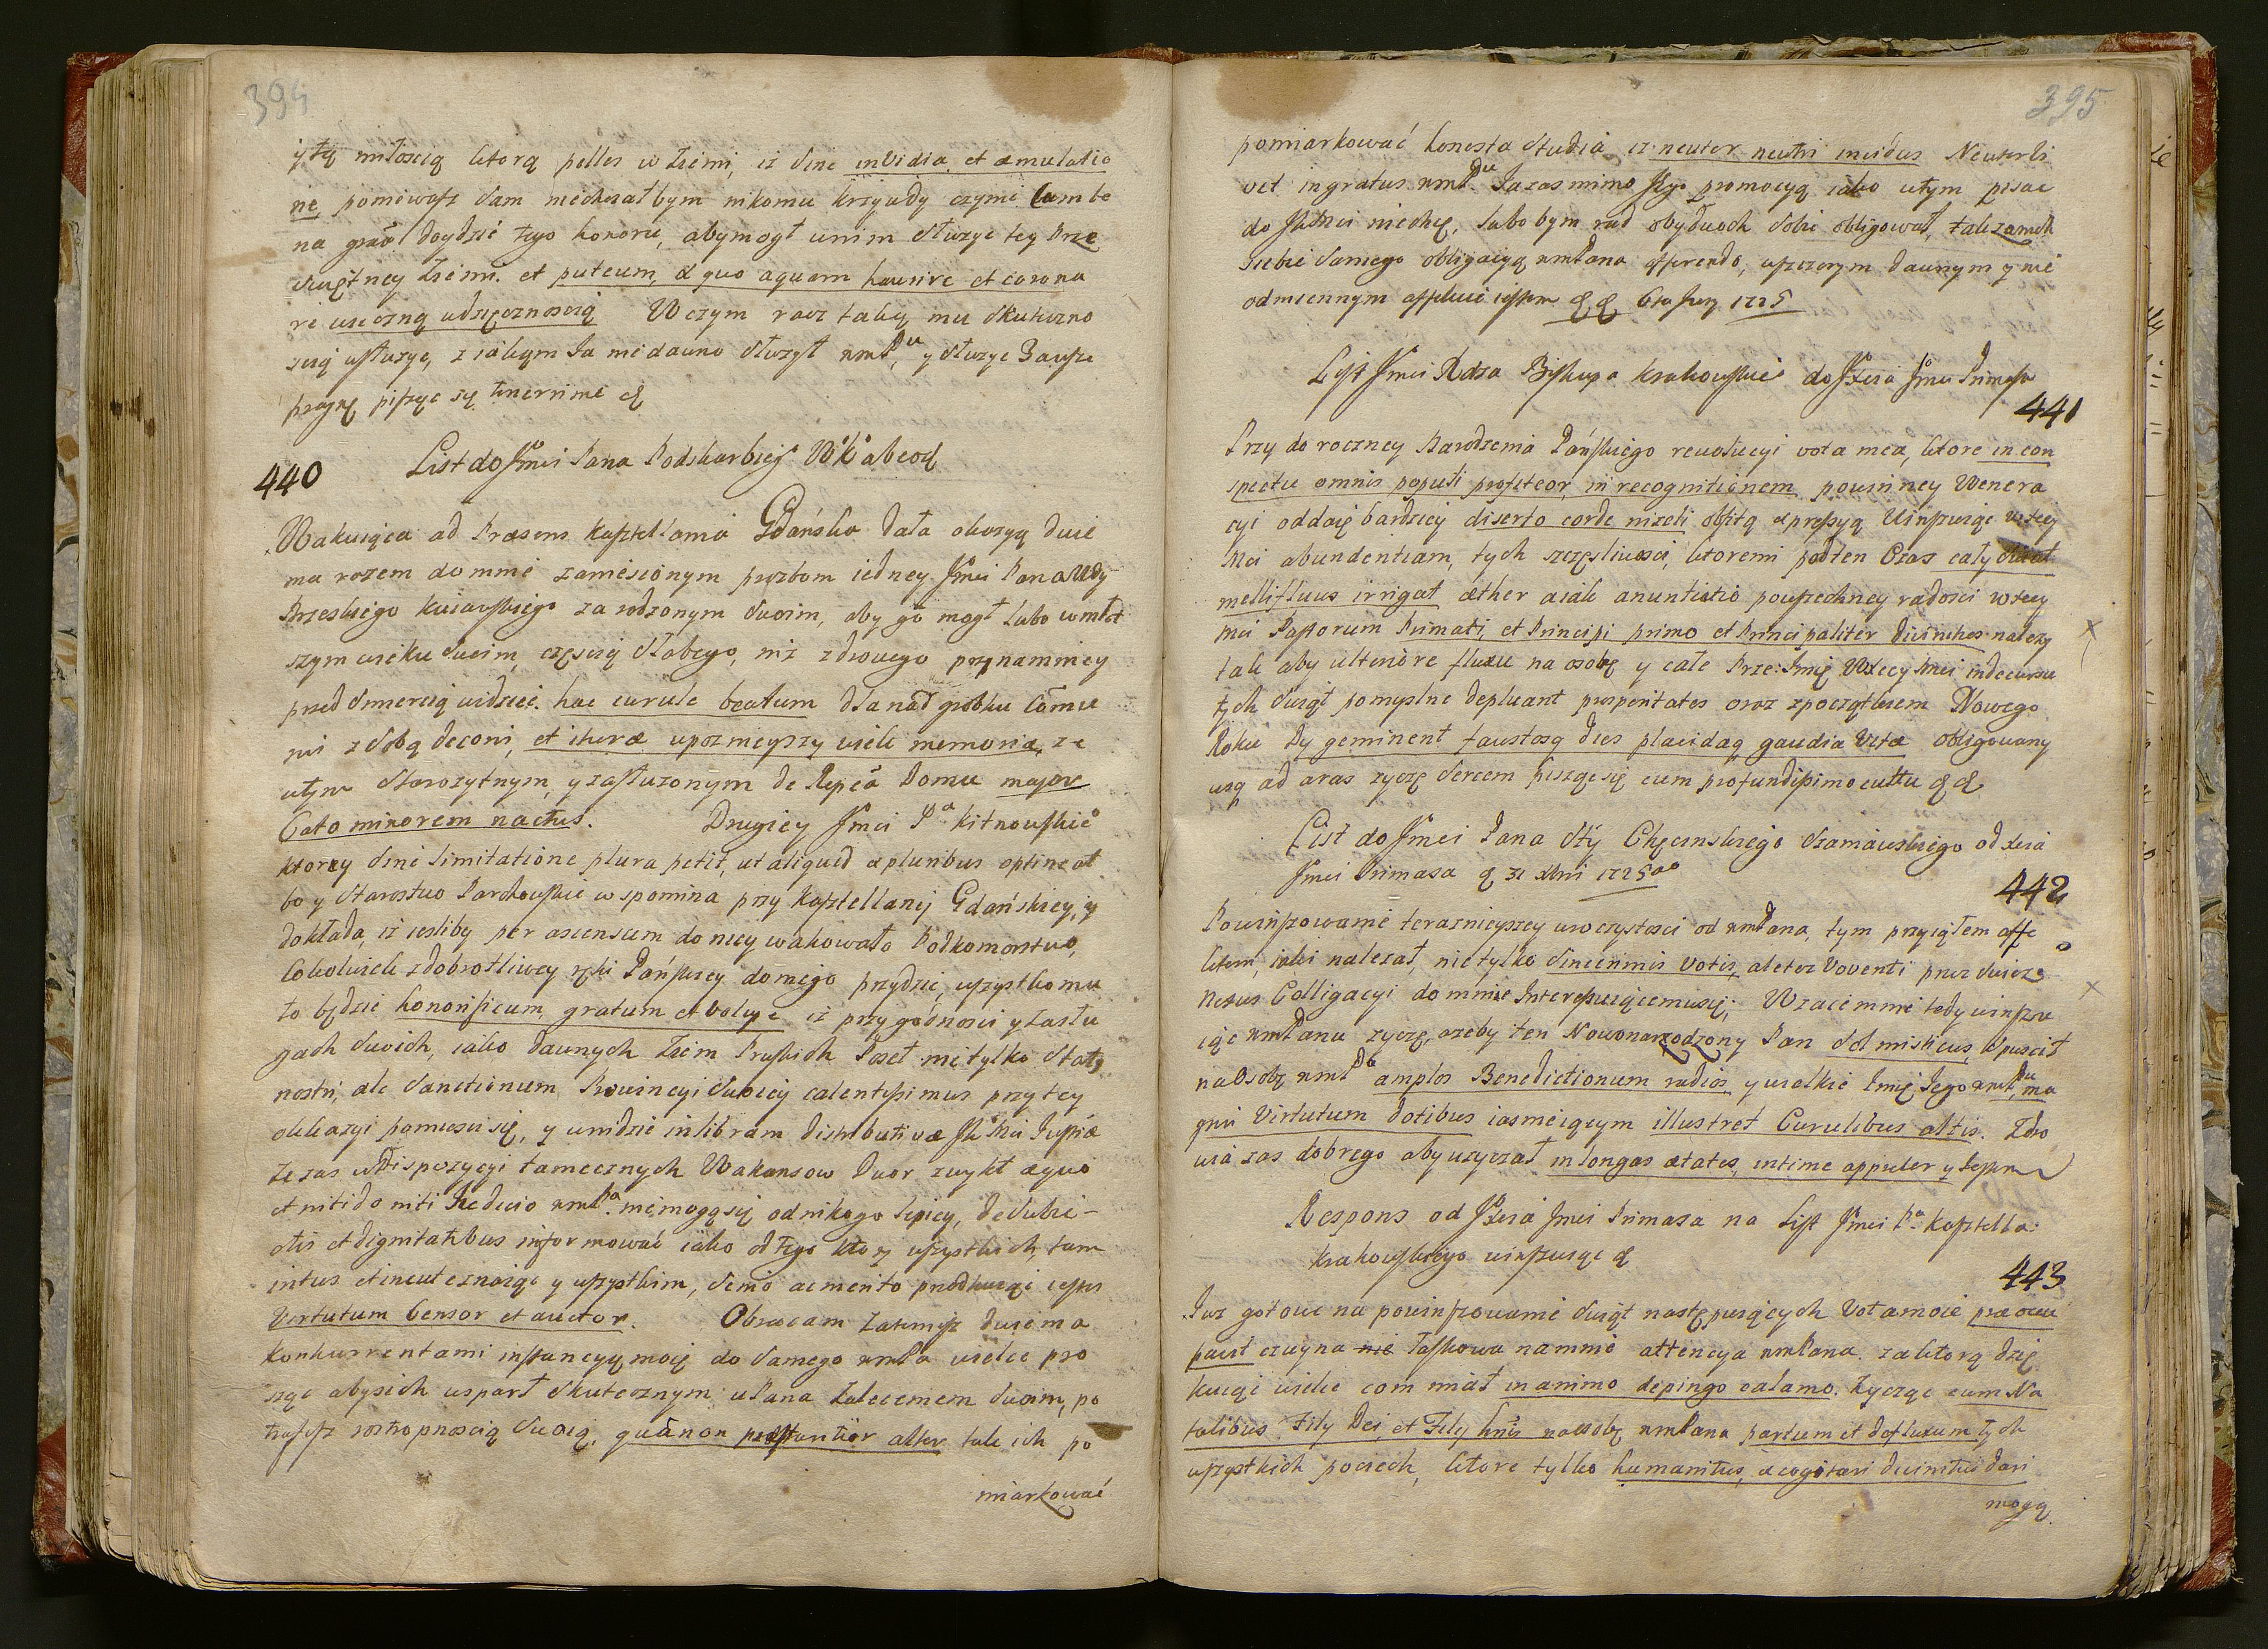 394
y tą miłoscią ktorą pelles w Ziemi, iz sine invidia et æmulatio
ne, poniewasz sam niechciałbym nikomu krzywdy czynic
na doydzie tego honoru, abymogł unim służyc tey Prze
swiętney Ziemi. et puteum, a quo aquam haurire et corona
re wieczną wdzięcznoscią W czym racz taką mu skuteczno
scią usłuzyc, z iakąm Ja niedawno służył wmPu, y służyc Zawsze
pragnę pisząc się &
440 List do Jmci Pana Podskarbieg° W° K°
Wakuiąca ad Præsens Kasztellania Gdańska dała okazyą dwie
ma razem domnie zaniesionym prozbom iedney Jmci Pana Wdy
Brzeskiego kuiawskiego za rodzonym swoim, aby go mogł lubo wmłod
szym wieku swoim, częsciey słabego, niz zdrowego przynamniey
przed smiercią widziec hac curule beatum dla nad grobku
ni zdobą deconi, et upoznieyszy wieki memoriæ, ze
wtym Starozytnym, y zasłuzonym de Repca Domu major
Cato minorem nactus. Drugiey Jmci Pa Kitnowskie°
ktorzy sine limitatione plura petit, ut aliquid a pluribus optineat
bo y Starostwo Parchowskie wspomina przy Kasztellanij Gdańskiey, y
dokłada, iz iesliby per ascensum do niey wakowało Podkomorstwo,
Cokolwiek zdobrotliwey ręki Pańskiey do niego przydzie, wszystko mu
to będzie honorificum, gratum et volupe iz przy godnosci y zasłu
gach swoich, iako dawnych Ziem Pruskich Poseł nietylko Stat9
nostri, ale Sanctionum Prowincyi swoiey calentissimus przytey
okkazyi pomiesci się, y unidzie in libram distributivæ JKMci Justiæ
Ze zas w dispozycyi tamecznych Wakansow Dwor zwykł æquo
et nitido niti Iudicio wmPa. niemogą się od nikogo lepiey, de subie-
ctis et dignitatibus informować iako od tego ktory wszystkich, tam
intus et in cute znaiąc y wszystkim, ac merito iestes
Virtutum Censor et auctor. Obracam Zatemysz dwiema
Konkurrentami instancyą moię do samego wmPa wielce pro
sząc abysich wsparł skutecznym u Pana Zaleceniem swoim, po
trafisz roztropnoscią swoią, quânon præstantior alter tak ich po
miarkować
395
pomiarkować honesta studia iz neuter neutri invidus Neuteri
vet ingratus wmPdu. Ja zas mimo Jego promocyą iako wtym pisac
do JKMci niechcę, lubo bym rad obydwoch sobie obligował,
siebie samego obligacyą wmPana offerendo, wszczerym dawnym y nie
odmiennym affekcie iestem && 1725
List Jmci Xdza Biskupa Krakowskie° do JXcia Jmci Primasa
441
Przy do roczney Narodzenia Pańskiego rewolucyi vota mea, ktore in con
spectu omnis populi profiteor, in recognitionem powinney Wenera
cyi oddaię bardziey diserto corde nizeli obfitą expressyą Winszuiąc WXcey
Mci abundentiam, tych szczęsliwosci, ktoremi podten Czas cały
mellifluus irrigat æther aiak anuntiatio powszechney radosci WXcey
Mci Pastorum Primati, et Principi primo et Principaliter divinitus nalezy
tak aby ulteriore fluxu na osobę y całe Prze: Imię WXcey Mci indecursu
tych swiąt pomyslne depluant prosperitates oraz zpoczątkiem Nowego
Roku Dij geminent faustosq dies placidaq gaudia Vitæ obligowany
usq ad aras zyczę sercem pisząc się cum profundissimo cultu &&
List do Jmci Pana Sty Chęcinskiego Szaniawskiego od Xcia
Jmci Primasa & 31 Xbri 1725ao
442
Powinszowanie terazniejszey uroczystosci od wmPana, tym przyiąłem affe
ktem, iaki nalezał, nie tylko sincerrimis votis, ale tez Voventi przez swieze
nexus Colligacyi do mnie Interessuiącemu się; Wzaiemnie tedy winszu
iąc wmPanu zyczę, azeby ten Nowonarodzony Pan sol misticus, spuscił
na Osobę wmPa amplos Benedictionum radios, y wielkie Imię Jego wmPu, ma
gnis Virtutum dotibus iasnieiącym illustret Curulibus altis. Zdro
wia zas dobrego aby uzyczał in longas ætates, intime apprecor y Iestem
Respons od JXcia Jmci Primasa na List Jmci Pa Kasztella:
Krakowskiego winszuiąc &
443
Juz gotowe na powinszowanie swiąt następuiących Vota moie præoccu
pavit czuyna nie łaskawa namnie attencya wmPana. za ktorą dzię
kuiąc wielce com miał in animo depingo calamo. Zycząc cum Na
talibus Filij Dei, et Filij hnis na osobę wmPana partum et defluxum tych
wszystkich pociech, ktore tylko humanitus, excogitari divinitus dari
mogą.